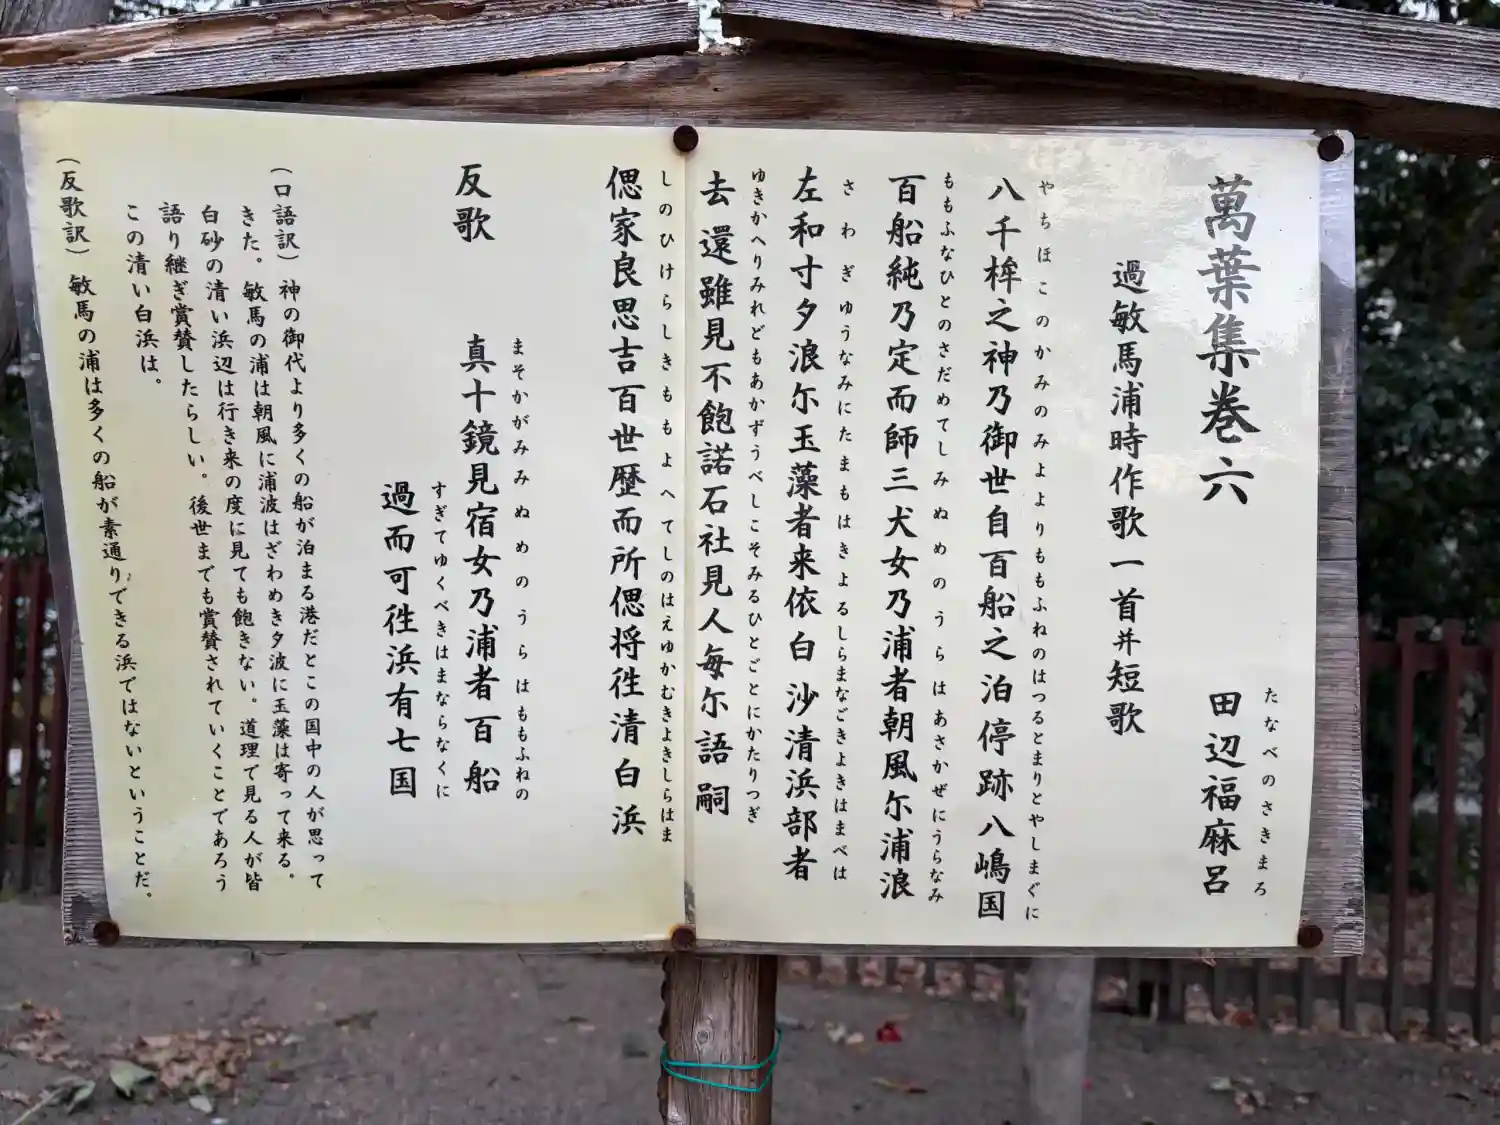 萬葉集巻六
たなべのさきまろ
田辺福麻呂
過敏馬浦時作歌一首并短歌
やちほこのかみのみよよりももふねのはつるとまりとやしまぐに
八千桙之神乃御世自百船之泊停跡八嶋国
ももふなひとのさだめてしみぬめのうらはあさかぜにうらなみ
百船純乃定而師三犬女乃浦者朝風尓浦浪
さわぎゆうなみにたまもはきよるしらまなごきよきはまべは
左和寸夕浪尓玉藻者来依白沙清浜部者
ゆきかへりみれどもあかずうべしこそみるひとごとにかたりつぎ
去還雖見不飽諾石社見人毎尓語嗣
しのひけらしきももよへてしのはえゆかむきよきしらはま
偲家良思吉百世歴而所偲将徃清白浜
反歌
まそかがみみぬめのうらはももふねの
真十鏡見宿女乃浦者百船
すぎてゆくべきはまならなくに
過而可徃浜有七国
（口語訳）神の御代より多くの船が泊まる港だとこの国中の人が思って
きた。敏馬の浦は朝風に浦波はざわめき夕波に玉藻は寄って来る。
白砂の清い浜辺は行き来の度に見ても飽きない。道理で見る人が皆
語り継ぎ賞賛したらしい。後世までも賞賛されていくことであろう
この清い白浜は。
（反歌訳）敏馬の浦は多くの船が素通りできる浜ではないということだ。